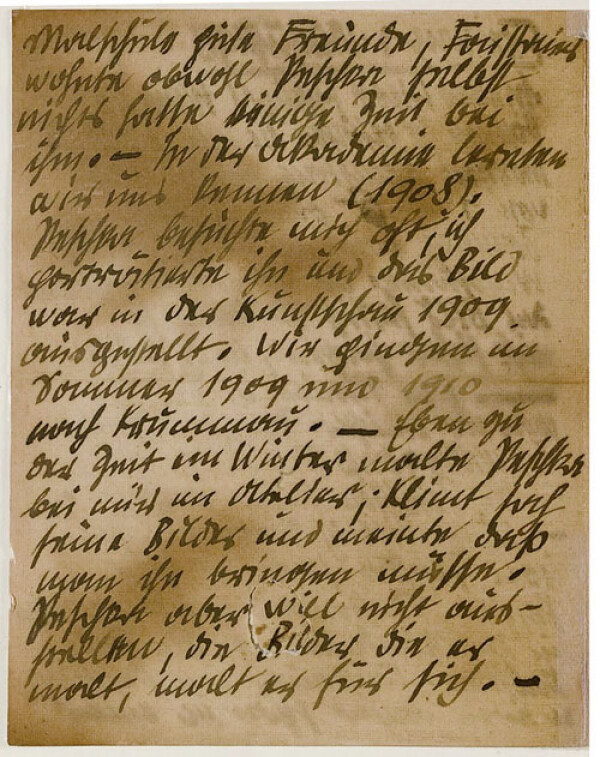 Malschule gute Freunde, Faistauer
wohnte obwohl Peschka selbst
nichts hatte einige Zeit bei
ihm. – In der Akademie lernten
wir uns kennen (1908).
Peschka besuchte mich oft, ich
porträtierte ihn und das Bild
war in der Kunstschau 1909
ausgestellt. Wir gingen im
Sommer 1909 und 1910
nach Krummau. – Eben zu
der Zeit im Winter malte Peschka
bei mir im Atelier; Klimt sah
seine Bilder und meinte daß
man ihn bringen müsse.
Peschka aber will nicht aus-
stellen, die Bilder die er
malt, malt er für sich. –